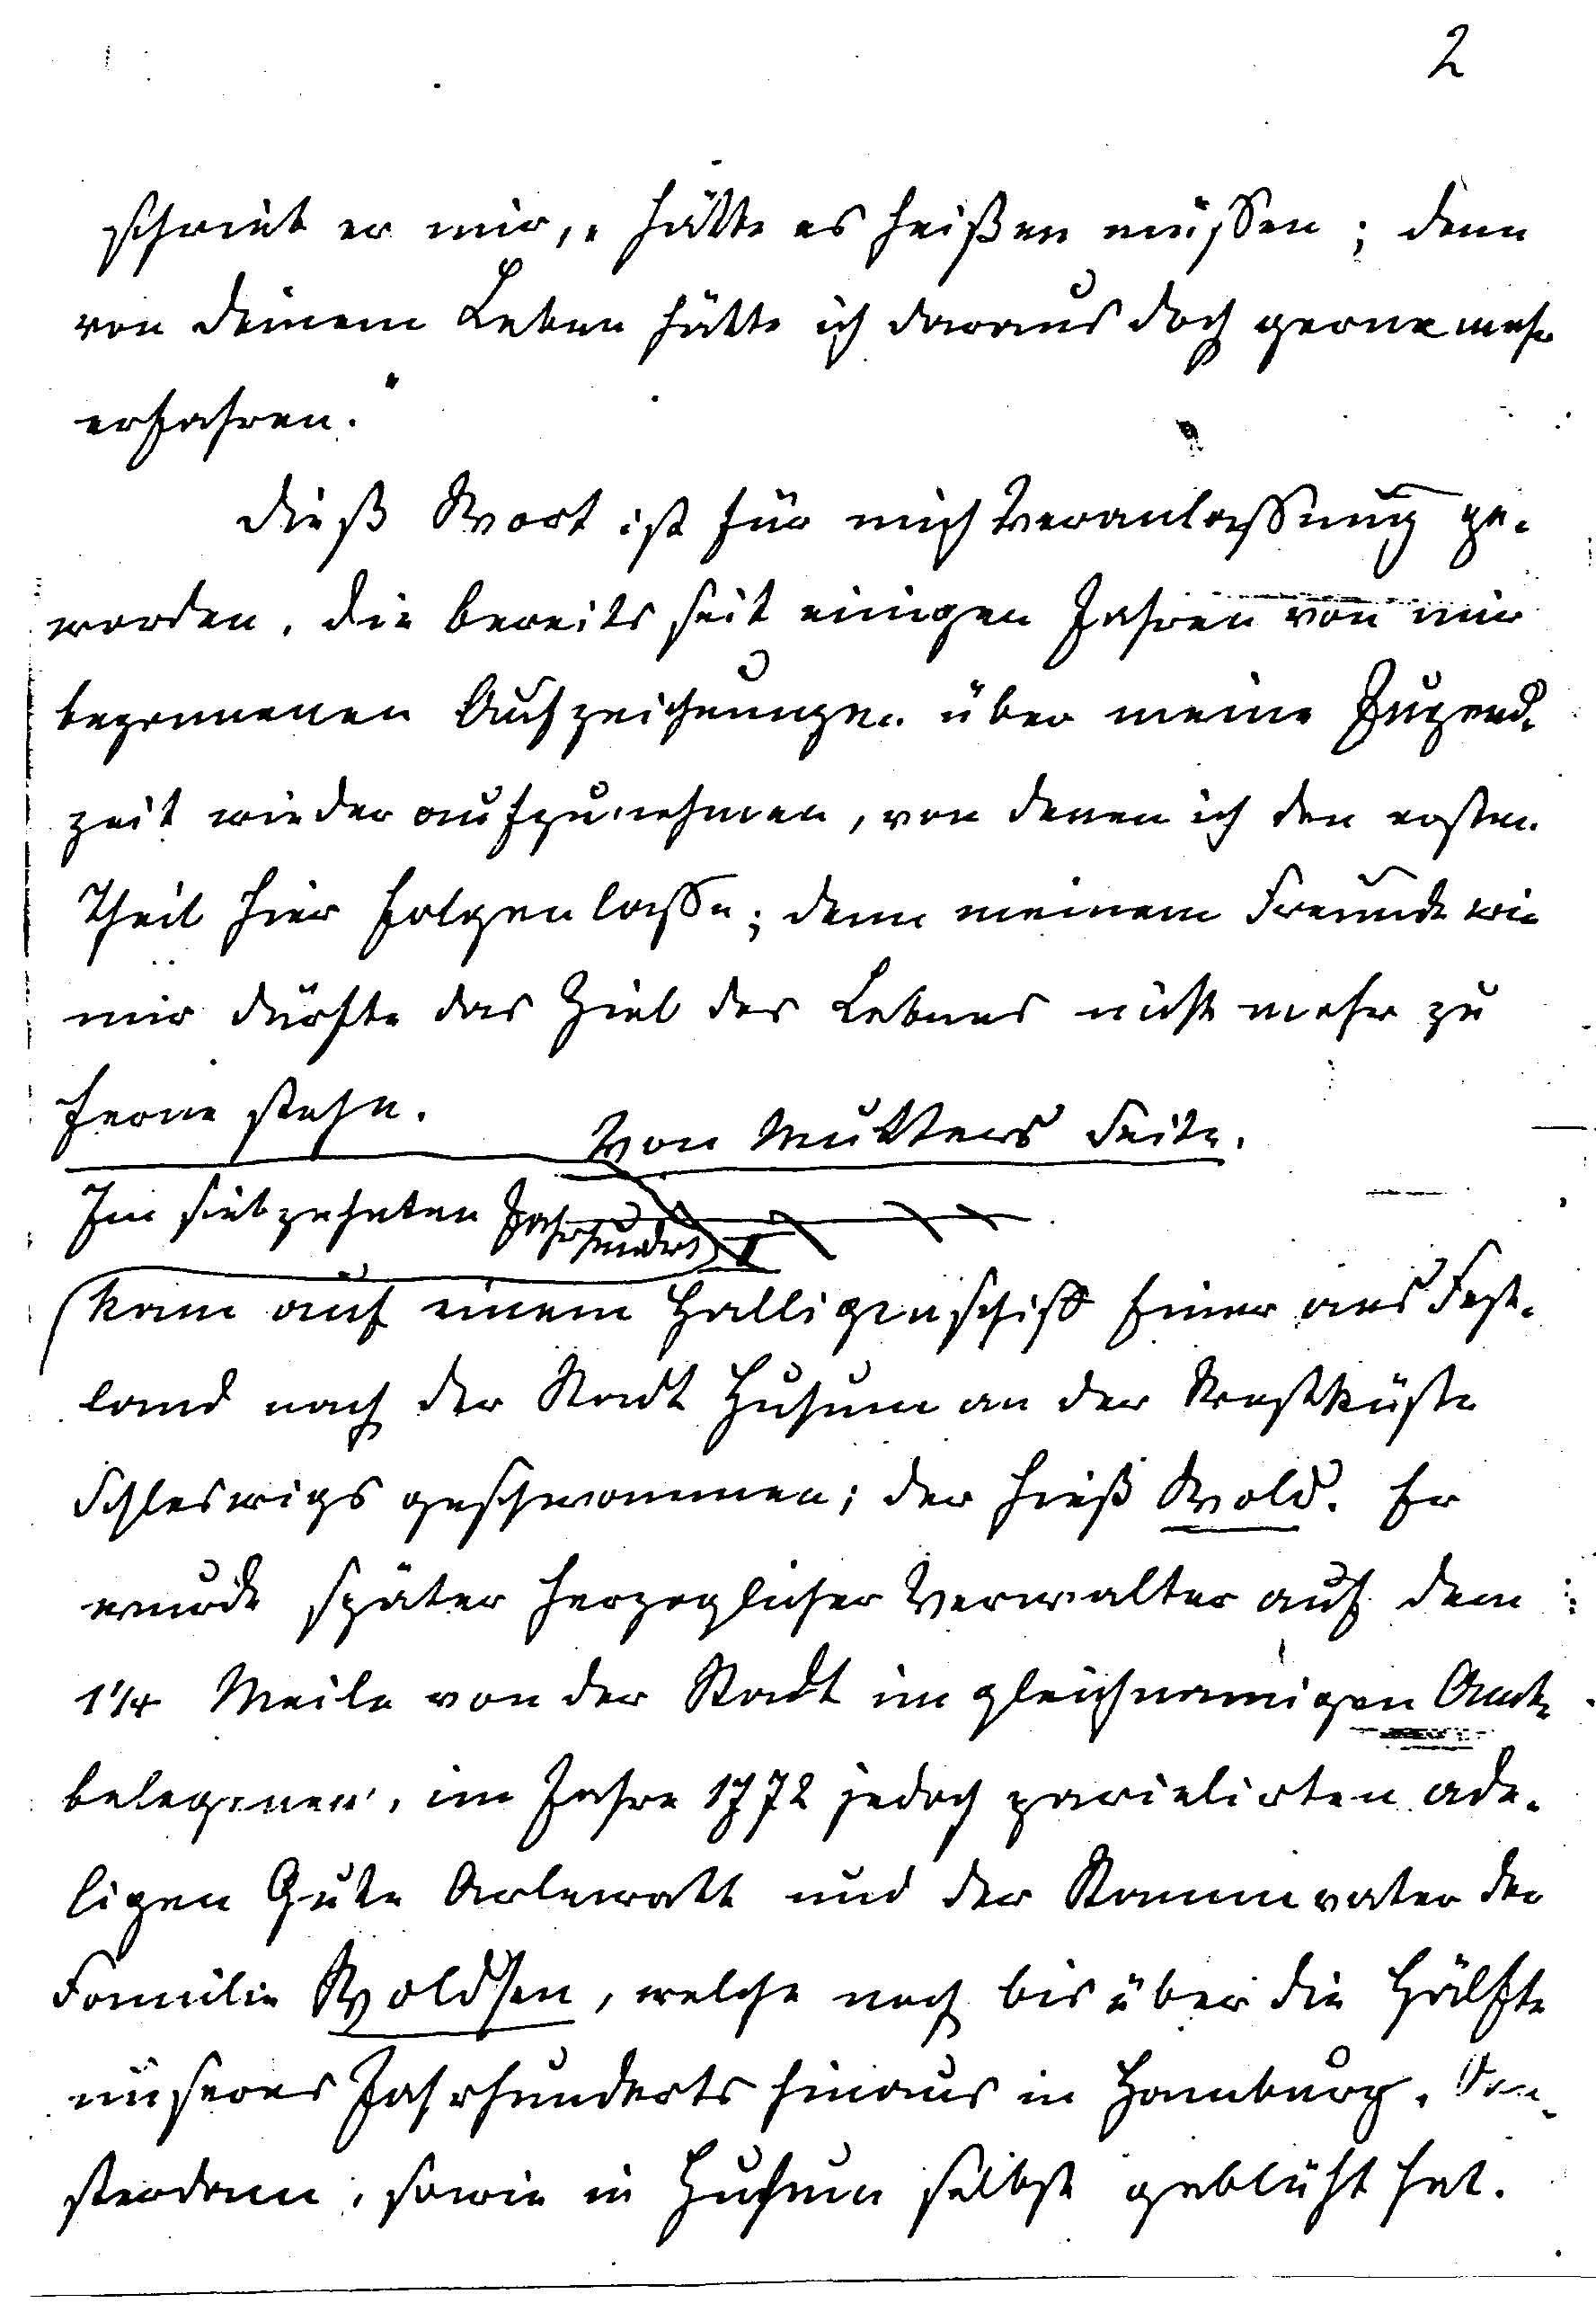 2
schrieb er mir, „hätte es heißen müssen; denn
von deinem Leben hätte ich daraus doch gerne mehr
erfahren.“
Dieß Wort ist für mich Veranlassung ge-
worden, die bereits seit einigen Jahren von mir
begonnenen Aufzeichnungen über meine Jugend-
zeit wieder aufzunehmen, von denen ich den ersten
Theil hier folgen lasse; denn meinem Freunde wie
mir dürfte das Ziel des Lebens nicht mehr zu
ferne stehn.
Von Mutters Seite.
Im siebzehnten Jahrhundert
kam auf einem Halligenschiff Einer ans Fest-
land nach der Stadt Husum an der Westküste
Schleswigs geschwommen; der hieß Wold. Er
wurde später herzoglicher Verwalter auf dem
1 1/4 Meile von der Stadt im gleichnamigen Amte
belegenen, im Jahre 1772 jedoch parcelirten ade-
ligen Gute Arlewatt und der Stammvater der
Familie Woldsen, welche noch bis über die Hälfte
unseres Jahrhunderts hinaus in Hamburg, Am-
sterdam, sowie in Husum selbst geblüht hat.